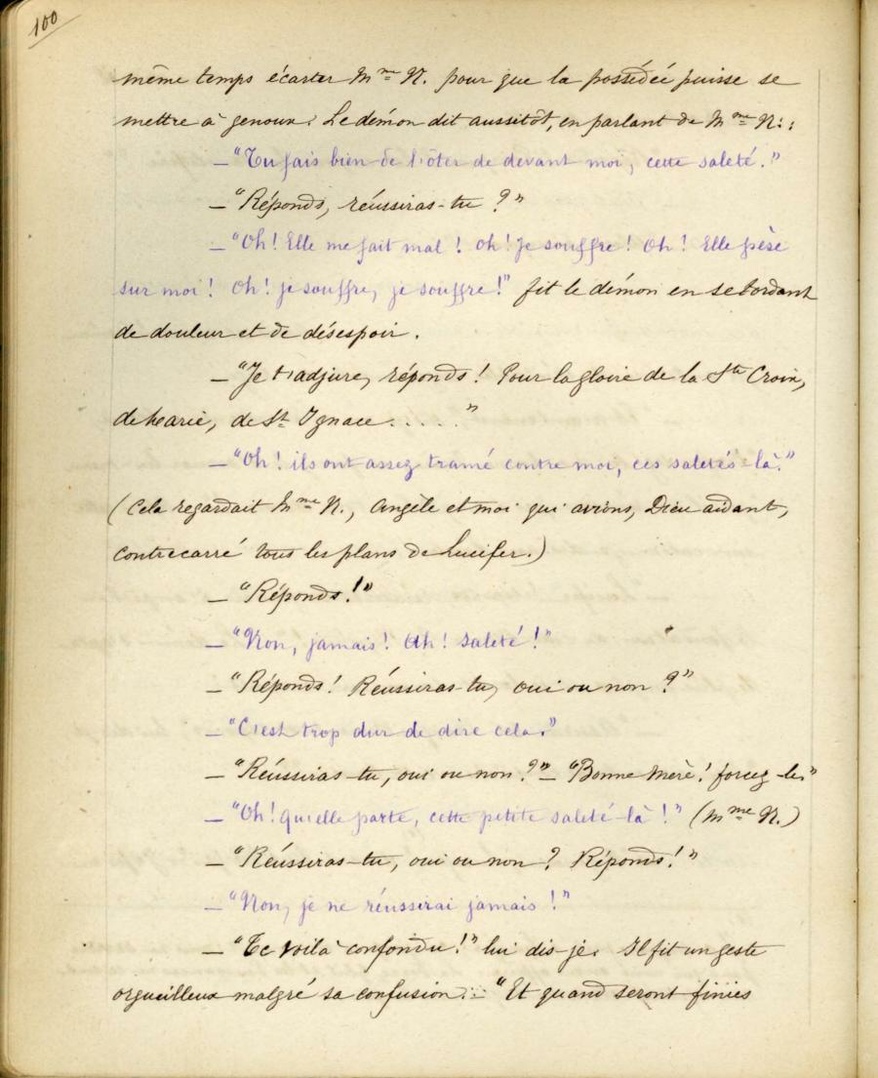 100
même temps écarter Mme N. pour que la possédée puisse se
mettre à genoux. Le démon dit aussitôt, en parlant de Mme N. :
— "Tu fais bien de l'ôter de devant moi, cette saleté."
— "Réponds, réussiras-tu ?"
— "Oh ! Elle me fait mal ! Oh ! Je souffre ! Oh ! Elle pèse
sur moi ! Oh ! je souffre, je souffre !" fit le démon en se tordant
de douleur et de désespoir.
— "Je t'adjure, réponds ! Pour la gloire de la Ste Croix,
de Marie, de St Ignace ....."
— "Oh ! ils ont assez tramé contre moi, ces saletés-là."
(Cela regardait Mme N., Angèle et moi qui avions, Dieu aidant,
contrecarré tous les plans de Lucifer.)
— "Réponds !"
— "Non, jamais ! Ah ! Saleté !"
— "Réponds ! Réussiras-tu, oui ou non ?"
— "C'est trop dur de dire cela."
— "Réussiras-tu, oui ou non ?" — "Bonne Mère ! forcez-le"
— "Oh ! qu'elle parte, cette petite saleté-là !" (Mme N.)
— "Réussiras-tu, oui ou non ? Réponds !"
— "Non, je ne réussirai jamais !"
— "Te voilà confondu !" lui dis-je. Il fit un geste
orgueilleux malgré sa confusion. — "Et quand seront finies